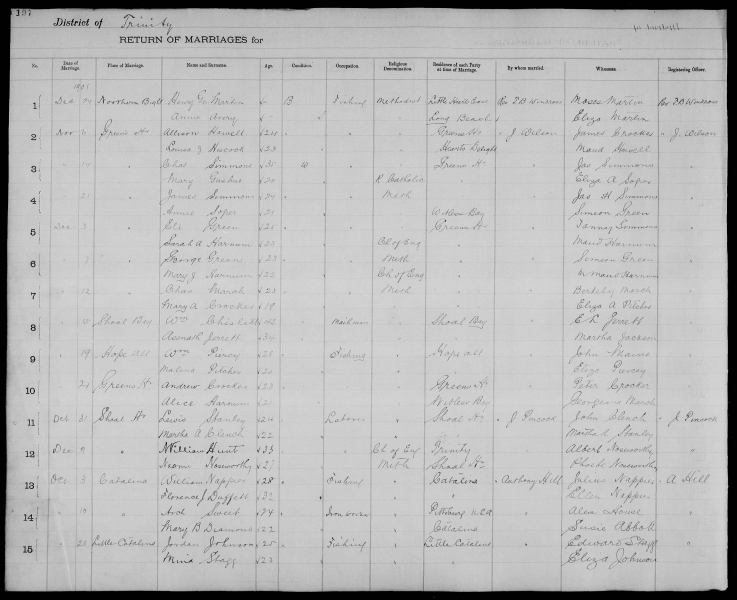 197
District of Trinity
RETURN OF MARRIAGES for
No. Date of Marriage. Place of Marriage. Name and Surname. Age. Condition. Occupation. Religious Denomination. Residence of each Party at time of Marriage. By whom married. Witnesses. Registering Officer.
1901
1 Dec 24 Northern Bight Henry Geo Martin B Fishing Methodist Little Heart's Ease Rev T.B Windross Moses Martin Rev T.B Windross
Annie Avery " Long Beach Eliza Martin
2 Nov 6 Greens Hr Allison Howell 24 " " Greens Hr " J Wilson James Crocker " J Wilson
Louisa J 23 " Hearts Delight Maud Howell
3 " 14 " Chas Simmons 35 W " " Greens Hr " Jas Simmons "
Mary 20 R. Catholic " Eliza A Soper
4 " 21 " James Simmons 24 " Meth " " Jas H Simmons "
Annie Soper 21 " Witless Bay Simeon Green
5 Dec 3 " Eli Green 25 " " Greens Hr " Fanny Simmons "
Sarah A Harnum 23 Ch of Eng " Maud Harnum
6 " 3 " George Greene 23 " Meth " " Simeon Green "
Mary J Harnum 22 Ch of Eng " Maud Harnum
7 " 12 " Chas March 23 " Meth " " Berkeley March "
Mary A Crocker 19 " " Eliza A Pitcher
8 " Shoal Bay Wm Chislett 42 Mailman " Shoal Bay " Jerrett "
Asenath Jerrett 34 " " Martha Jackson
9 " 19 Hope all Wm Piercey 23 Fishing " Hope all " John "
Malina Pitcher 21 " " Eliza Piercey
10 " 24 Greens Hr Andrew Crocker 23 " " Greens Hr " Peter Crocker "
Alice Harnum 21 " Witless Bay Georgeana March
11 Oct 31 Shoal Hr Lewis Stanley 24 Laborer " Shoal Hr " J Pincock John Clench " J Pincock
Martha A Clench 22 " " Stanley
12 Dec 9 " William Hunt 33 " Ch of Eng Trinity " Albert Noseworthy "
Naomi Noseworthy 27 Meth Shoal Hr Phoebe Noseworthy
13 Oct 3 Catalina William Napper 28 Fishing " Catalina " Anthony Hill Julius Napper " A Hill
Florence J Duffett 32 " " Ellen Napper
14 " " Arch Sweet 24 Iron worker " Pittsburg U.S.A " Howel "
Mary B Diamond 22 " Catalina Susie Abbott
15 " 23 Little Catalina Jordan Johnson 25 Fishing " Little Catalina " Edward Stagg "
Mina Stagg 23 " " Eliza Johnson